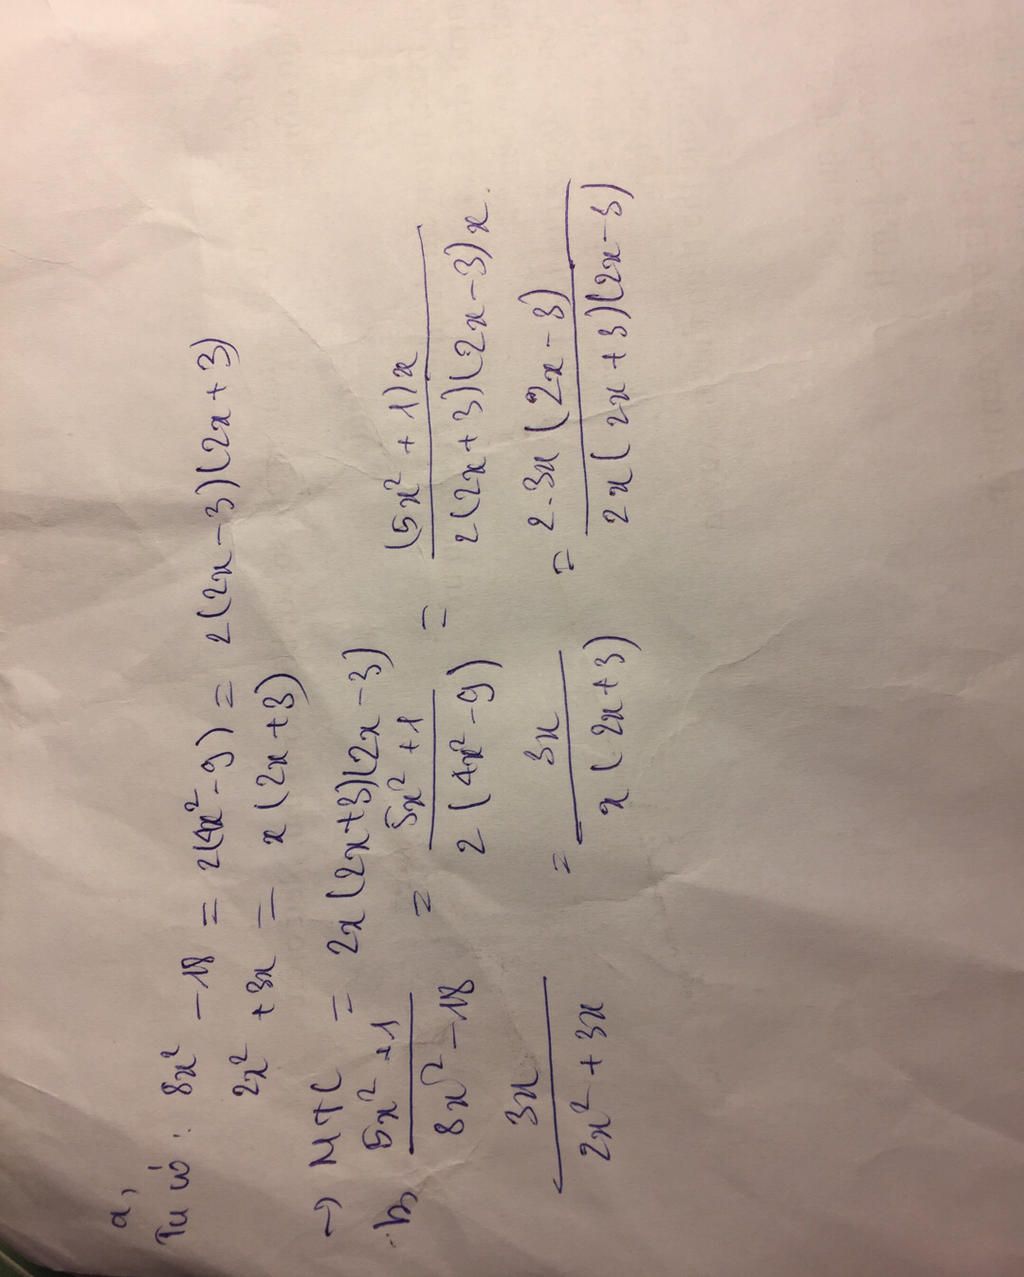 a,
Ta có: 8x² - 18 = 2(4x² - 9) = 2(2x - 3)(2x + 3)
2x² + 3x = x(2x + 3)
→ MTC = 2x(2x+3)(2x - 3)
b, (5x² + 1)/(8x² - 18) = (5x² + 1)/(2(4x² - 9)) = ((5x² + 1)x)/(2(2x + 3)(2x - 3)x).
3x/(2x² + 3x) = 3x/(x(2x + 3)) = (2.3x(2x - 3))/(2x(2x + 3)(2x - 3))